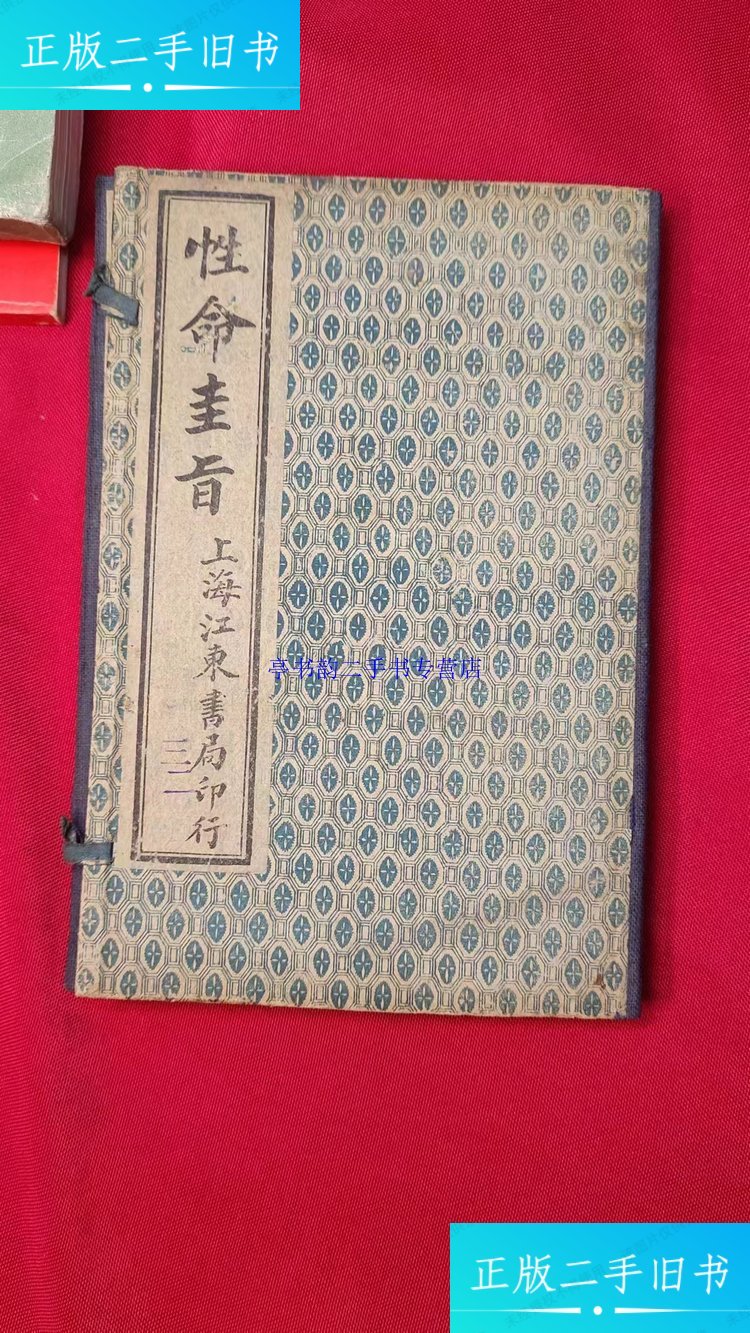 正版二手旧书
性命圭旨
上海江東書局印行
三二
亭书韵二手书专营店
正版二手旧书